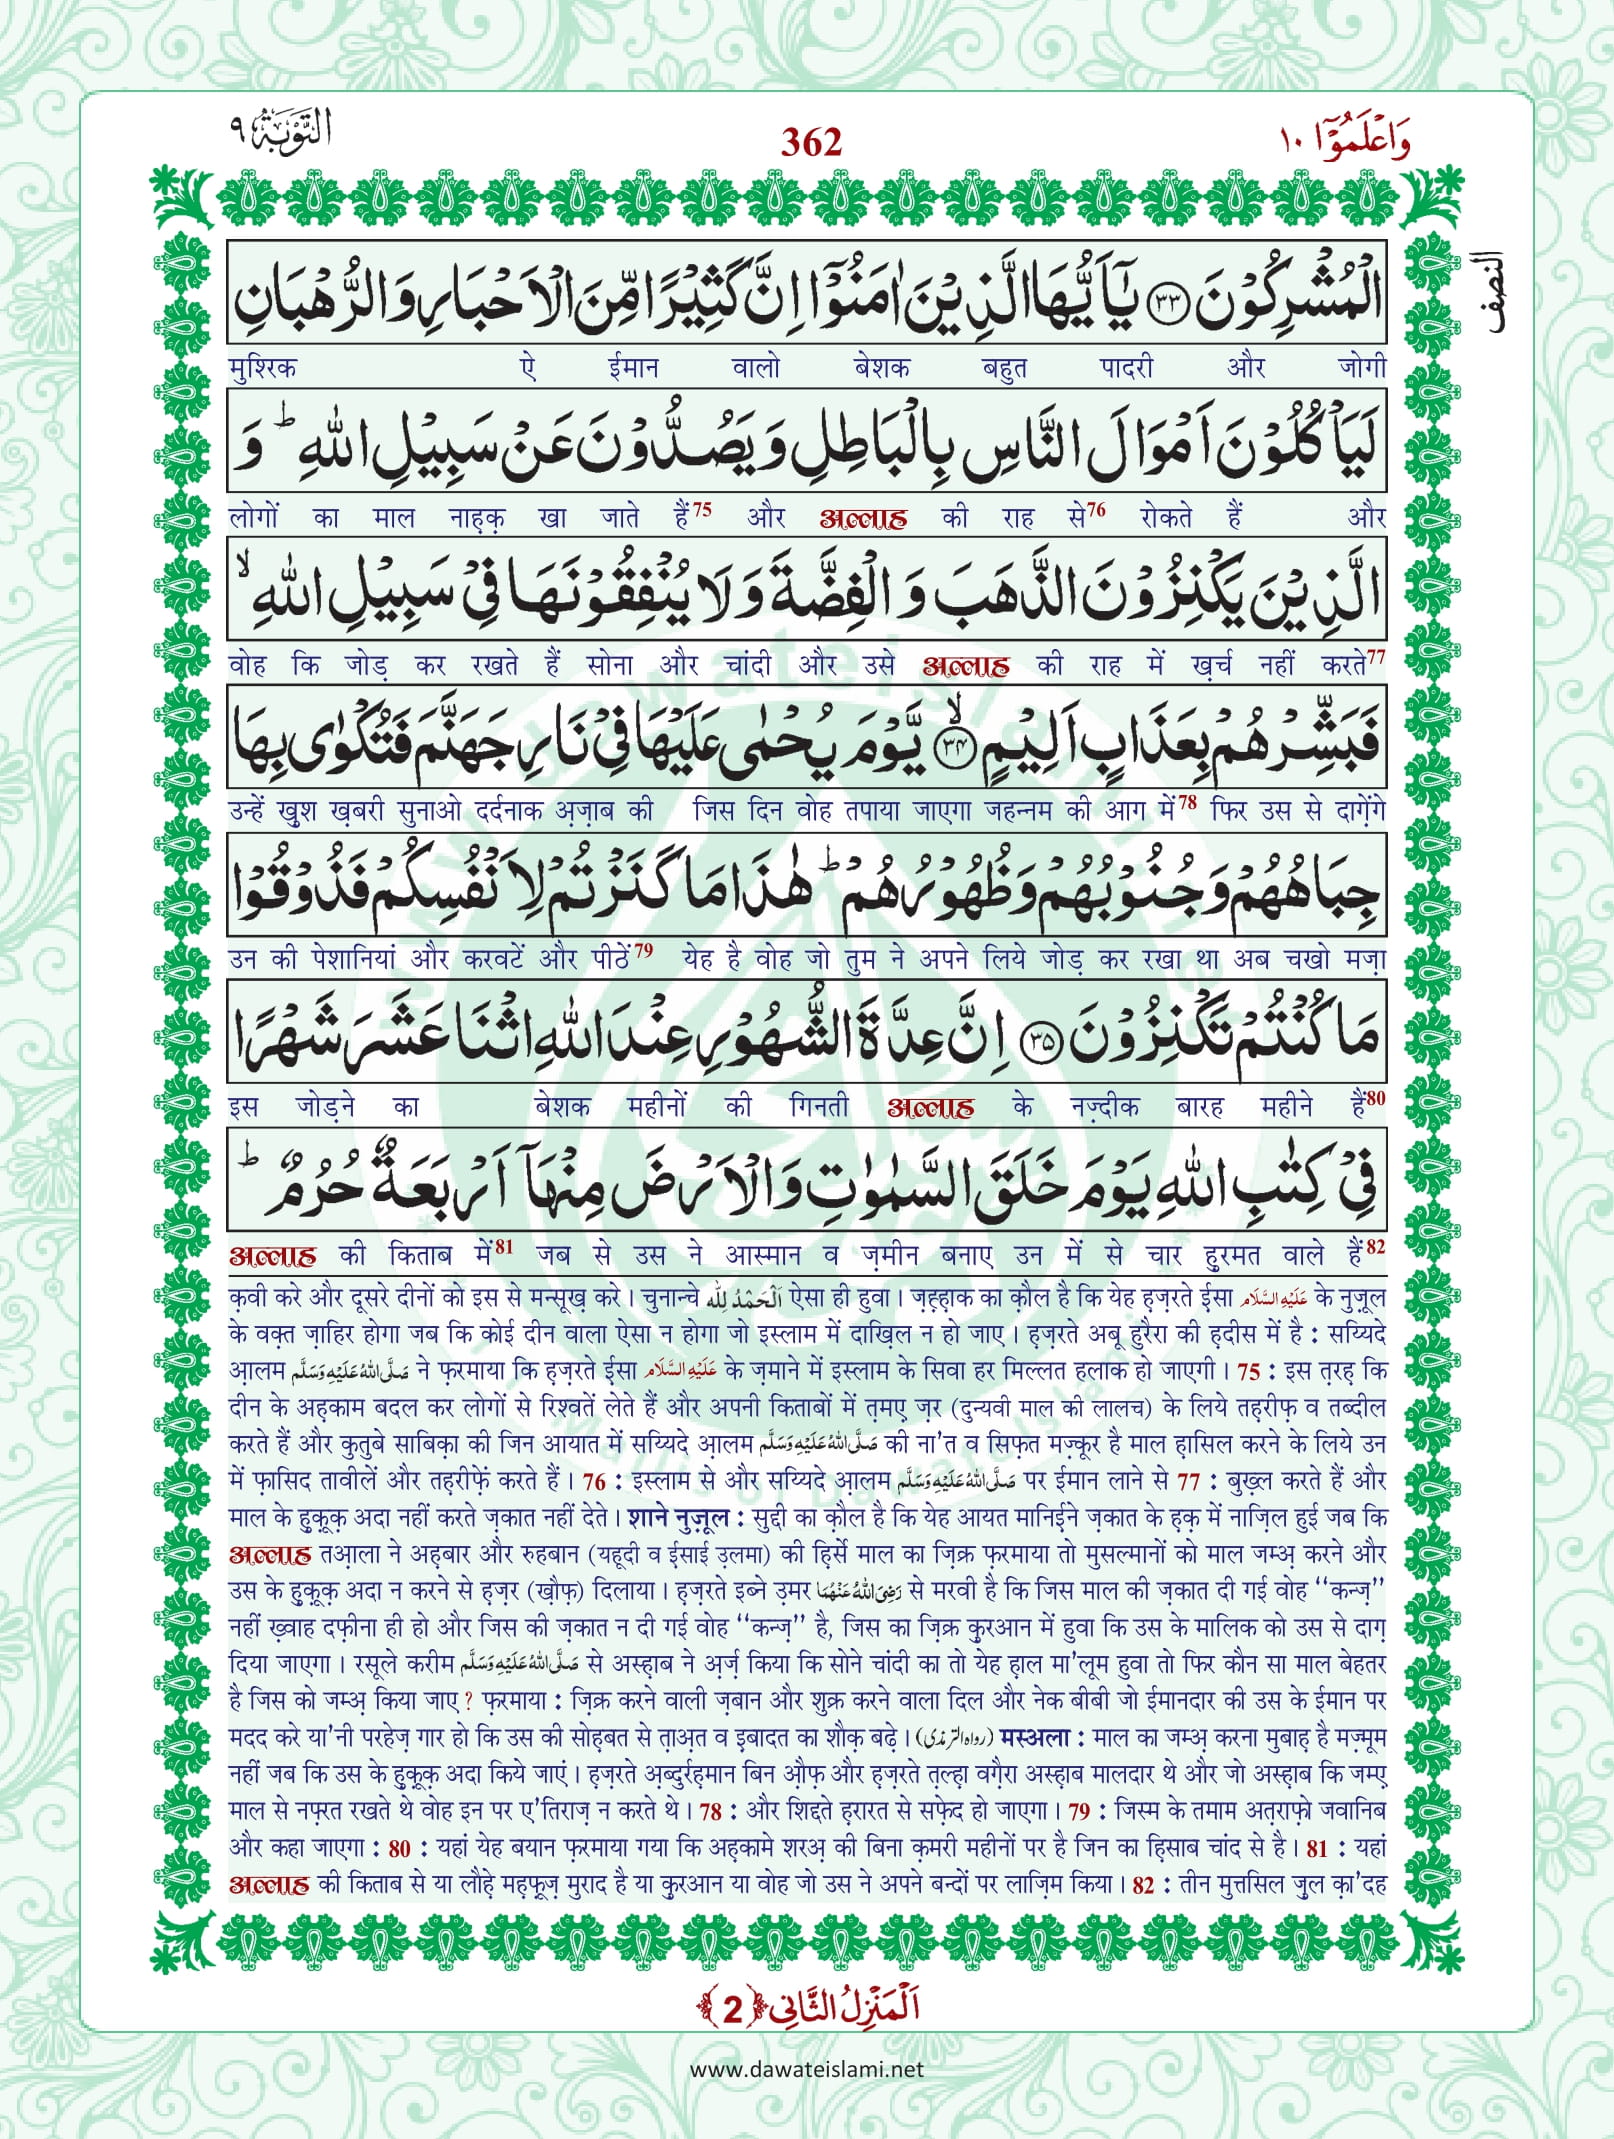 وَاعْلَمُوْۤا ١٠
362
التَّوْبَة ٩
النصف
الْمُشْرِكُوْنَ ﴿۳۳﴾ یٰۤاَیُّهَا الَّذِیْنَ اٰمَنُوْۤا اِنَّ كَثِیْرًا مِّنَ الْاَحْبَارِ وَ الرُّهْبَانِ
मुश्रिक ऐ ईमान वालो बेशक बहुत पादरी और जोगी
لَیَاْكُلُوْنَ اَمْوَالَ النَّاسِ بِالْبَاطِلِ وَ یَصُدُّوْنَ عَنْ سَبِیْلِ اللّٰهِؕ وَ
लोगों का माल नाह़क़ खा जाते हैं75 और अल्लाह की राह से76 रोकते हैं और
الَّذِیْنَ یَكْنِزُوْنَ الذَّهَبَ وَ الْفِضَّةَ وَ لَا یُنْفِقُوْنَهَا فِیْ سَبِیْلِ اللّٰهِۙ
वोह कि जोड़ कर रखते हैं सोना और चांदी और उसे अल्लाह की राह में ख़र्च नहीं करते77
فَبَشِّرْهُمْ بِعَذَابٍ اَلِیْمٍۙ﴿۳۴﴾ یَّوْمَ یُحْمٰى عَلَیْهَا فِیْ نَارِ جَهَنَّمَ فَتُكْوٰى بِهَا
उन्हें खुश ख़बरी सुनाओ दर्दनाक अ़ज़ाब की जिस दिन वोह तपाया जाएगा जहन्नम की आग में78 फिर उस से दाग़ेंगे
جِبَاهُهُمْ وَ جُنُوْبُهُمْ وَ ظُهُوْرُهُمْؕ هٰذَا مَا كَنَزْتُمْ لِاَنْفُسِكُمْ فَذُوْقُوْا
उन की पेशानियां और करवटें और पीठें79 येह है वोह जो तुम ने अपने लिये जोड़ कर रखा था अब चखो मज़ा
مَا كُنْتُمْ تَكْنِزُوْنَ ﴿۳۵﴾ اِنَّ عِدَّةَ الشُّهُوْرِ عِنْدَ اللّٰهِ اثْنَا عَشَرَ شَهْرًا
इस जोड़ने का बेशक महीनों की गिनती अल्लाह के नज़्दीक बारह महीने हैं80
فِیْ كِتٰبِ اللّٰهِ یَوْمَ خَلَقَ السَّمٰوٰتِ وَ الْاَرْضَ مِنْهَاۤ اَرْبَعَةٌ حُرُمٌؕ
अल्लाह की किताब में81 जब से उस ने आस्मान व ज़मीन बनाए उन में से चार हुरमत वाले हैं82
क़वी करे और दूसरे दीनों को इस से मन्सूख़ करे। चुनान्चे اَلْحَمْدُ لِلّٰه ऐसा ही हुवा। ज़ह़्ह़ाक का क़ौल है कि येह ह़ज़रते ई़सा عَلَيْهِ السَّلَام के नुज़ूल
के वक़्त ज़ाहिर होगा जब कि कोई दीन वाला ऐसा न होगा जो इस्लाम में दाख़िल न हो जाए। ह़ज़रते अबू हुरैरा की ह़दीस में है : सय्यिदे
आ़लम صَلَّى اللهُ عَلَيْهِ وَسَلَّم ने फ़रमाया कि ह़ज़रते ई़सा عَلَيْهِ السَّلَام के ज़माने में इस्लाम के सिवा हर मिल्लत हलाक हो जाएगी। 75 : इस त़रह़ कि
दीन के अह़काम बदल कर लोगों से रिश्वतें लेते हैं और अपनी किताबों में त़मए़ ज़र (दुन्यवी माल की लालच) के लिये तह़रीफ़ व तब्दील
करते हैं और कुतुबे साबिक़ा की जिन आयात में सय्यिदे आ़लम صَلَّى اللهُ عَلَيْهِ وَسَلَّم की ना'त व सिफ़त मज़्कूर है माल ह़ासिल करने के लिये उन
में फ़ासिद तावीलें और तह़रीफ़ें करते हैं। 76 : इस्लाम से और सय्यिदे आ़लम صَلَّى اللهُ عَلَيْهِ وَسَلَّم पर ईमान लाने से 77 : बुख़्ल करते हैं और
माल के ह़ुक़ूक़ अदा नहीं करते ज़कात नहीं देते। शाने नुज़ूल : सुद्दी का क़ौल है कि येह आयत मानिई़ने ज़कात के ह़क़ में नाज़िल हुई जब कि
अल्लाह तआ़ला ने अह़बार और रुहबान (यहूदी व ईसाई उ़लमा) की ह़िर्से माल का ज़िक्र फ़रमाया तो मुसल्मानों को माल जम्अ़ करने और
उस के ह़ुक़ूक़ अदा न करने से ह़ज़र (ख़ौफ़) दिलाया। ह़ज़रते इब्ने उ़मर رَضِيَ اللهُ عَنْهُمَا से मरवी है कि जिस माल की ज़कात दी गई वोह "कन्ज़"
नहीं ख़्वाह दफ़ीना ही हो और जिस की ज़कात न दी गई वोह "कन्ज़" है, जिस का ज़िक्र क़ुरआन में हुवा कि उस के मालिक को उस से दाग़
दिया जाएगा। रसूले करीम صَلَّى اللهُ عَلَيْهِ وَسَلَّم से अस्ह़ाब ने अ़र्ज़ किया कि सोने चांदी का तो येह ह़ाल मा'लूम हुवा तो फिर कौन सा माल बेहतर
है जिस को जम्अ़ किया जाए ? फ़रमाया : ज़िक्र करने वाली ज़बान और शुक्र करने वाला दिल और नेक बीबी जो ईमानदार की उस के ईमान पर
मदद करे या'नी परहेज़ गार हो कि उस की सोह़बत से त़ाअ़त व इ़बादत का शौक़ बढ़े। (رواه الترمذی) मस्अला : माल का जम्अ़ करना मुबाह़ है मज़्मूम
नहीं जब कि उस के ह़ुक़ूक़ अदा किये जाएं। ह़ज़रते अ़ब्दुर्रह़मान बिन औ़फ़ और ह़ज़रते त़ल्ह़ा वग़ैरा अस्ह़ाब मालदार थे और जो अस्ह़ाब कि जम्ए़
माल से नफ़्रत रखते थे वोह इन पर ए'तिराज़ न करते थे। 78 : और शिद्दते ह़रारत से सफ़ेद हो जाएगा। 79 : जिस्म के तमाम अत़राफ़ो जवानिब
और कहा जाएगा : 80 : यहां येह बयान फ़रमाया गया कि अह़कामे शरअ़ की बिना क़मरी महीनों पर है जिन का ह़िसाब चांद से है। 81 : यहां
अल्लाह की किताब से या लौह़े मह़फ़ूज़ मुराद है या क़ुरआन या वोह जो उस ने अपने बन्दों पर लाज़िम किया। 82 : तीन मुत्तसिल ज़ुल क़ा'दह
اَلْمَنْزِلُ الثَّانِی ﴿2﴾
www.dawateislami.net